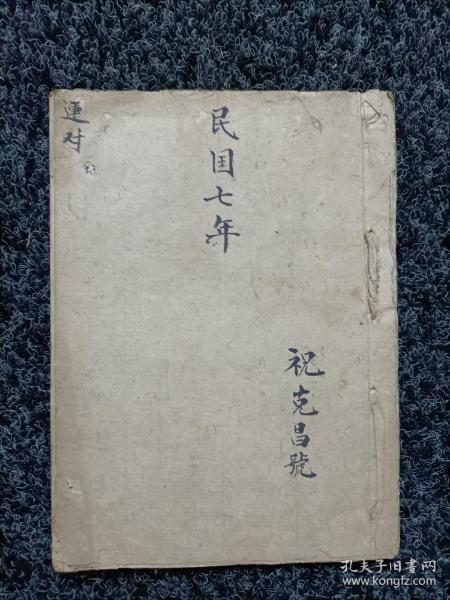 民国七年
祝克昌號
运对
孔夫子旧书网
www.kongfz.com